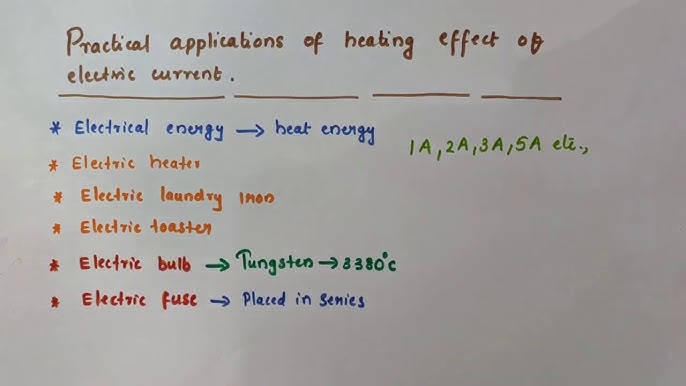 Practical applications of heating effect of
electric current.
* Electrical energy → heat energy
1A, 2A, 3A, 5A etc.,
* Electric heater
* Electric laundry iron
* Electric toaster
* Electric bulb → Tungsten → 3380°C
* Electric fuse → Placed in series